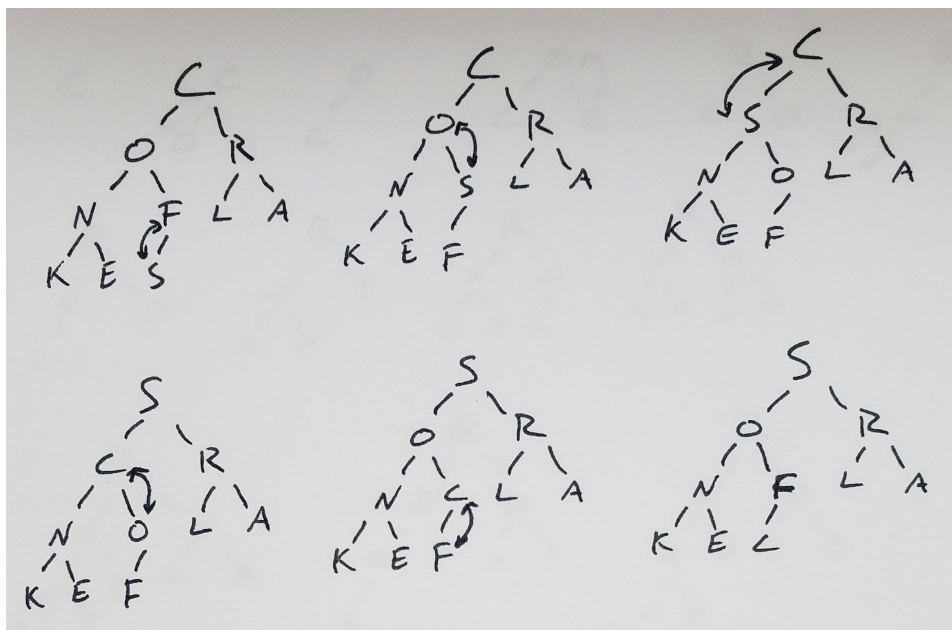 C
O R
N F L A
K E S
C
O R
N S L A
K E F
C
S R
N O L A
K E F
S
C R
N O L A
K E F
S
O R
N C L A
K E F
S
O R
N F L A
K E C